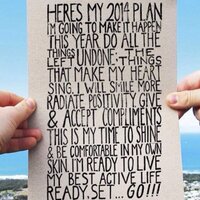 HERES MY 2014 PLAN
I'M GOING TO MAKE IT HAPPEN
THIS YEAR DO ALL THE
THINGS LEFT UNDONE: THE THINGS
THAT MAKE MY HEART
SING. I WILL SMILE MORE
RADIATE POSITIVITY GIVE
& ACCEPT COMPLIMENTS
THIS IS MY TIME TO SHINE
& BE COMFORTABLE IN MY OWN
SKIN. I'M READY TO LIVE
MY BEST ACTIVE LIFE
READY, SET... GO!!!